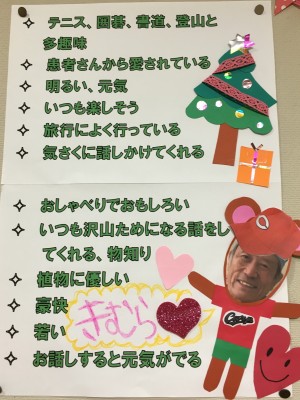 ✧ テニス、囲碁、書道、登山と
多趣味
✧ 患者さんから愛されている
✧ 明るい、元気
✧ いつも楽しそう
✧ 旅行によく行っている
✧ 気さくに話しかけてくれる
✧ おしゃべりでおもしろい
✧ いつも沢山ためになる話をし
てくれる、物知り
✧ 植物に優しい
✧ 豪快
✧ 若い
きむら
✧ お話しすると元気がでる